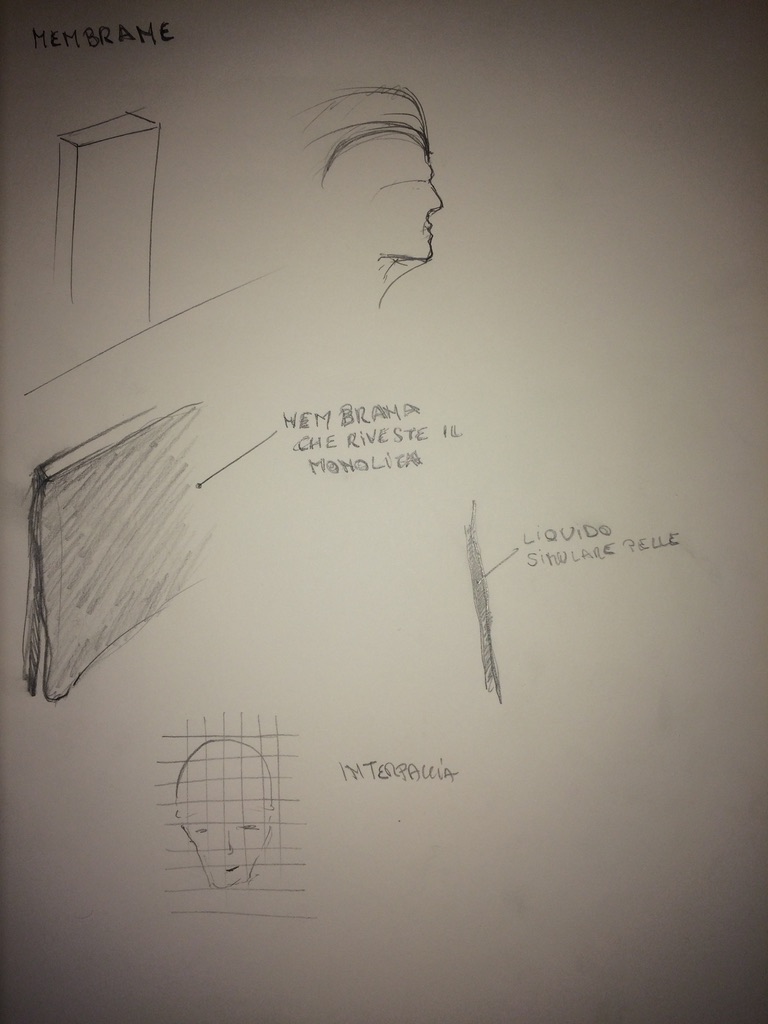 MEMBRANE
MEMBRANA
CHE RIVESTE IL
MONOLITA
LIQUIDO
SIMULARE PELLE
INTERFACCIA